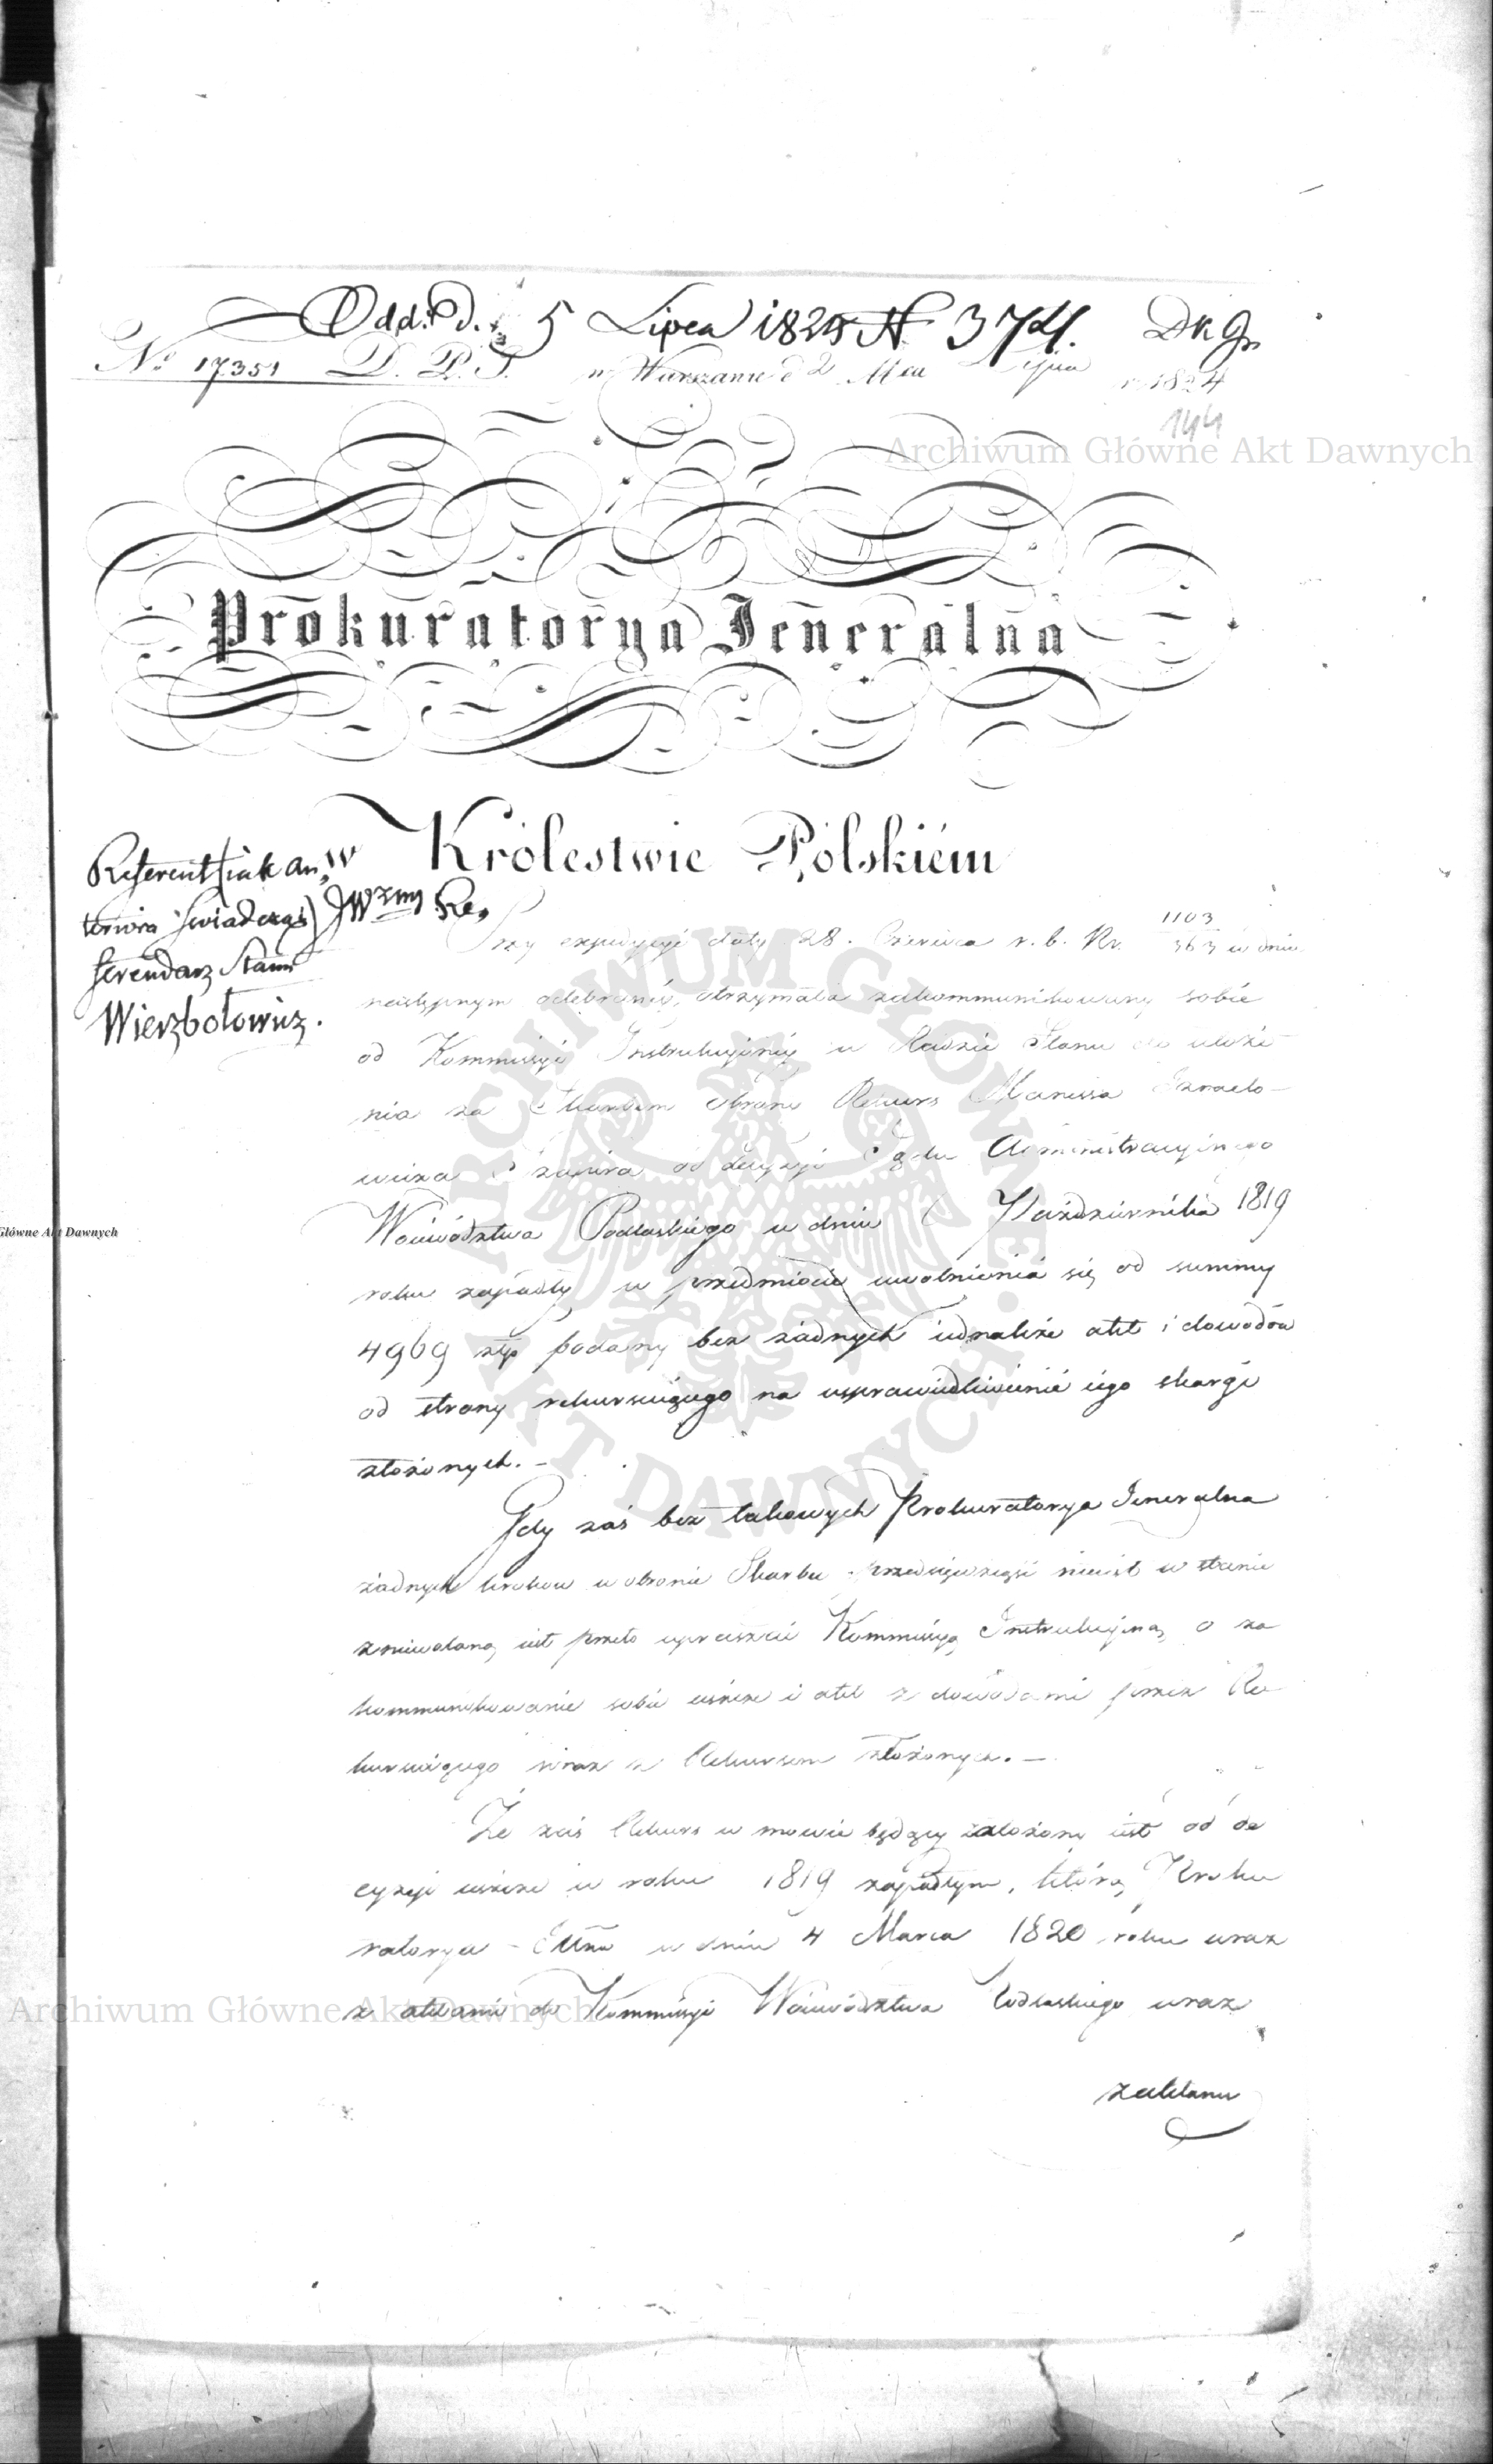 Odd. Pd. 5 Lipca 1824 N. 374. Dk Gr
No 17351 D. P. J. w Warszawie d 2 Mca Lipca r. 1824
144
Archiwum Główne Akt Dawnych
Prokuratorya Jeneralna
w Królestwie Polskiém
Referent iak an,,
teriora świadczą JWzny Re,,
ferendarz Stanu
Wierzbołowicz.
Przy expedycyi daty 28. Czerwca r. b. Nr. 1103/363 w dniu
następnym odebraney, otrzymała zakommunikowany sobie
od Kommissyi Instrukcyiney w Radzie Stanu do ułoże-
nia za Skarbem obrony Rekurs Manissa Izraelo-
wicza Szapira od decyzyi Sądu Administracyinego
Woiewództwa Podlaskiego w dniu Października 1819
roku zapadłey w przedmiocie uwolnienia się od summy
4969 złp podany bez żadnych iednakże akt i dowodów
od strony rekursuiącego na usprawiedliwienie iego skargi
złożonych. -
Gdy zaś bez takowych Prokuratorya Jeneralna
żadnych kroków w obronie Skarbu przedsięwziąść nieiest w stanie
zniewoloną iest przeto upraszać Kommissyą Instrukcyiną, o za
kommunikowanie sobie ieszcze i akt z dowodami przez Re
kursuiącego wraz z Rekursem złożonych. -
Że zaś Rekurs w mowie będący założony iest od de
cyzyi ieszcze w roku 1819 zapadłym, którą Proku
ratorya w dniu 4 Marca 1820 roku wraz
z aktami do Kommissyi Woiewództwa Podlaskiego wraz
Archiwum Główne Akt Dawnych
zakłanu
Główne Akt Dawnych
ARCHIWUM GŁÓWNE AKT DAWNYCH